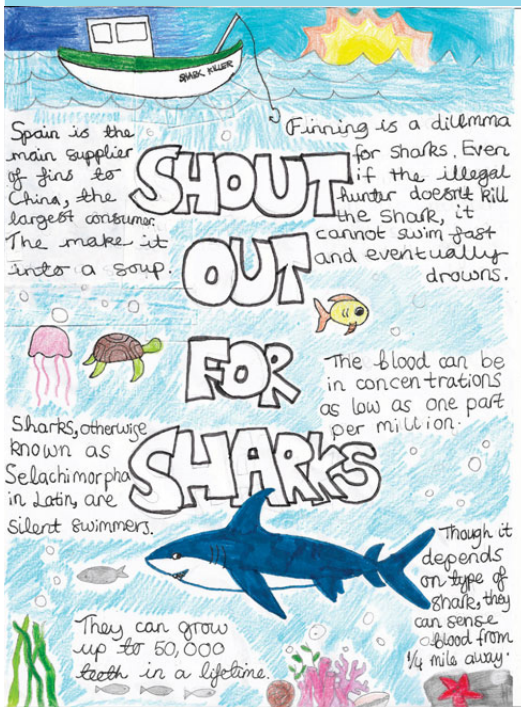 SHARK KILLER
Spain is the
main supplier
of fins to
China, the
largest consumer.
The make it
into a soup.
Finning is a dilemma
for sharks. Even
if the illegal
hunter doesn't kill
the shark, it
cannot swim fast
and eventually
drowns.
SHOUT
OUT
FOR
SHARKS
The blood can be
in concentrations
as low as one part
per million.
Sharks, otherwise
known as
Selachimorpha
in Latin, are
silent swimmers.
Though it
depends
on type of
shark, they
can sense
blood from
1/4 mile away.
They can grow
up to 50,000
teeth in a lifetime.